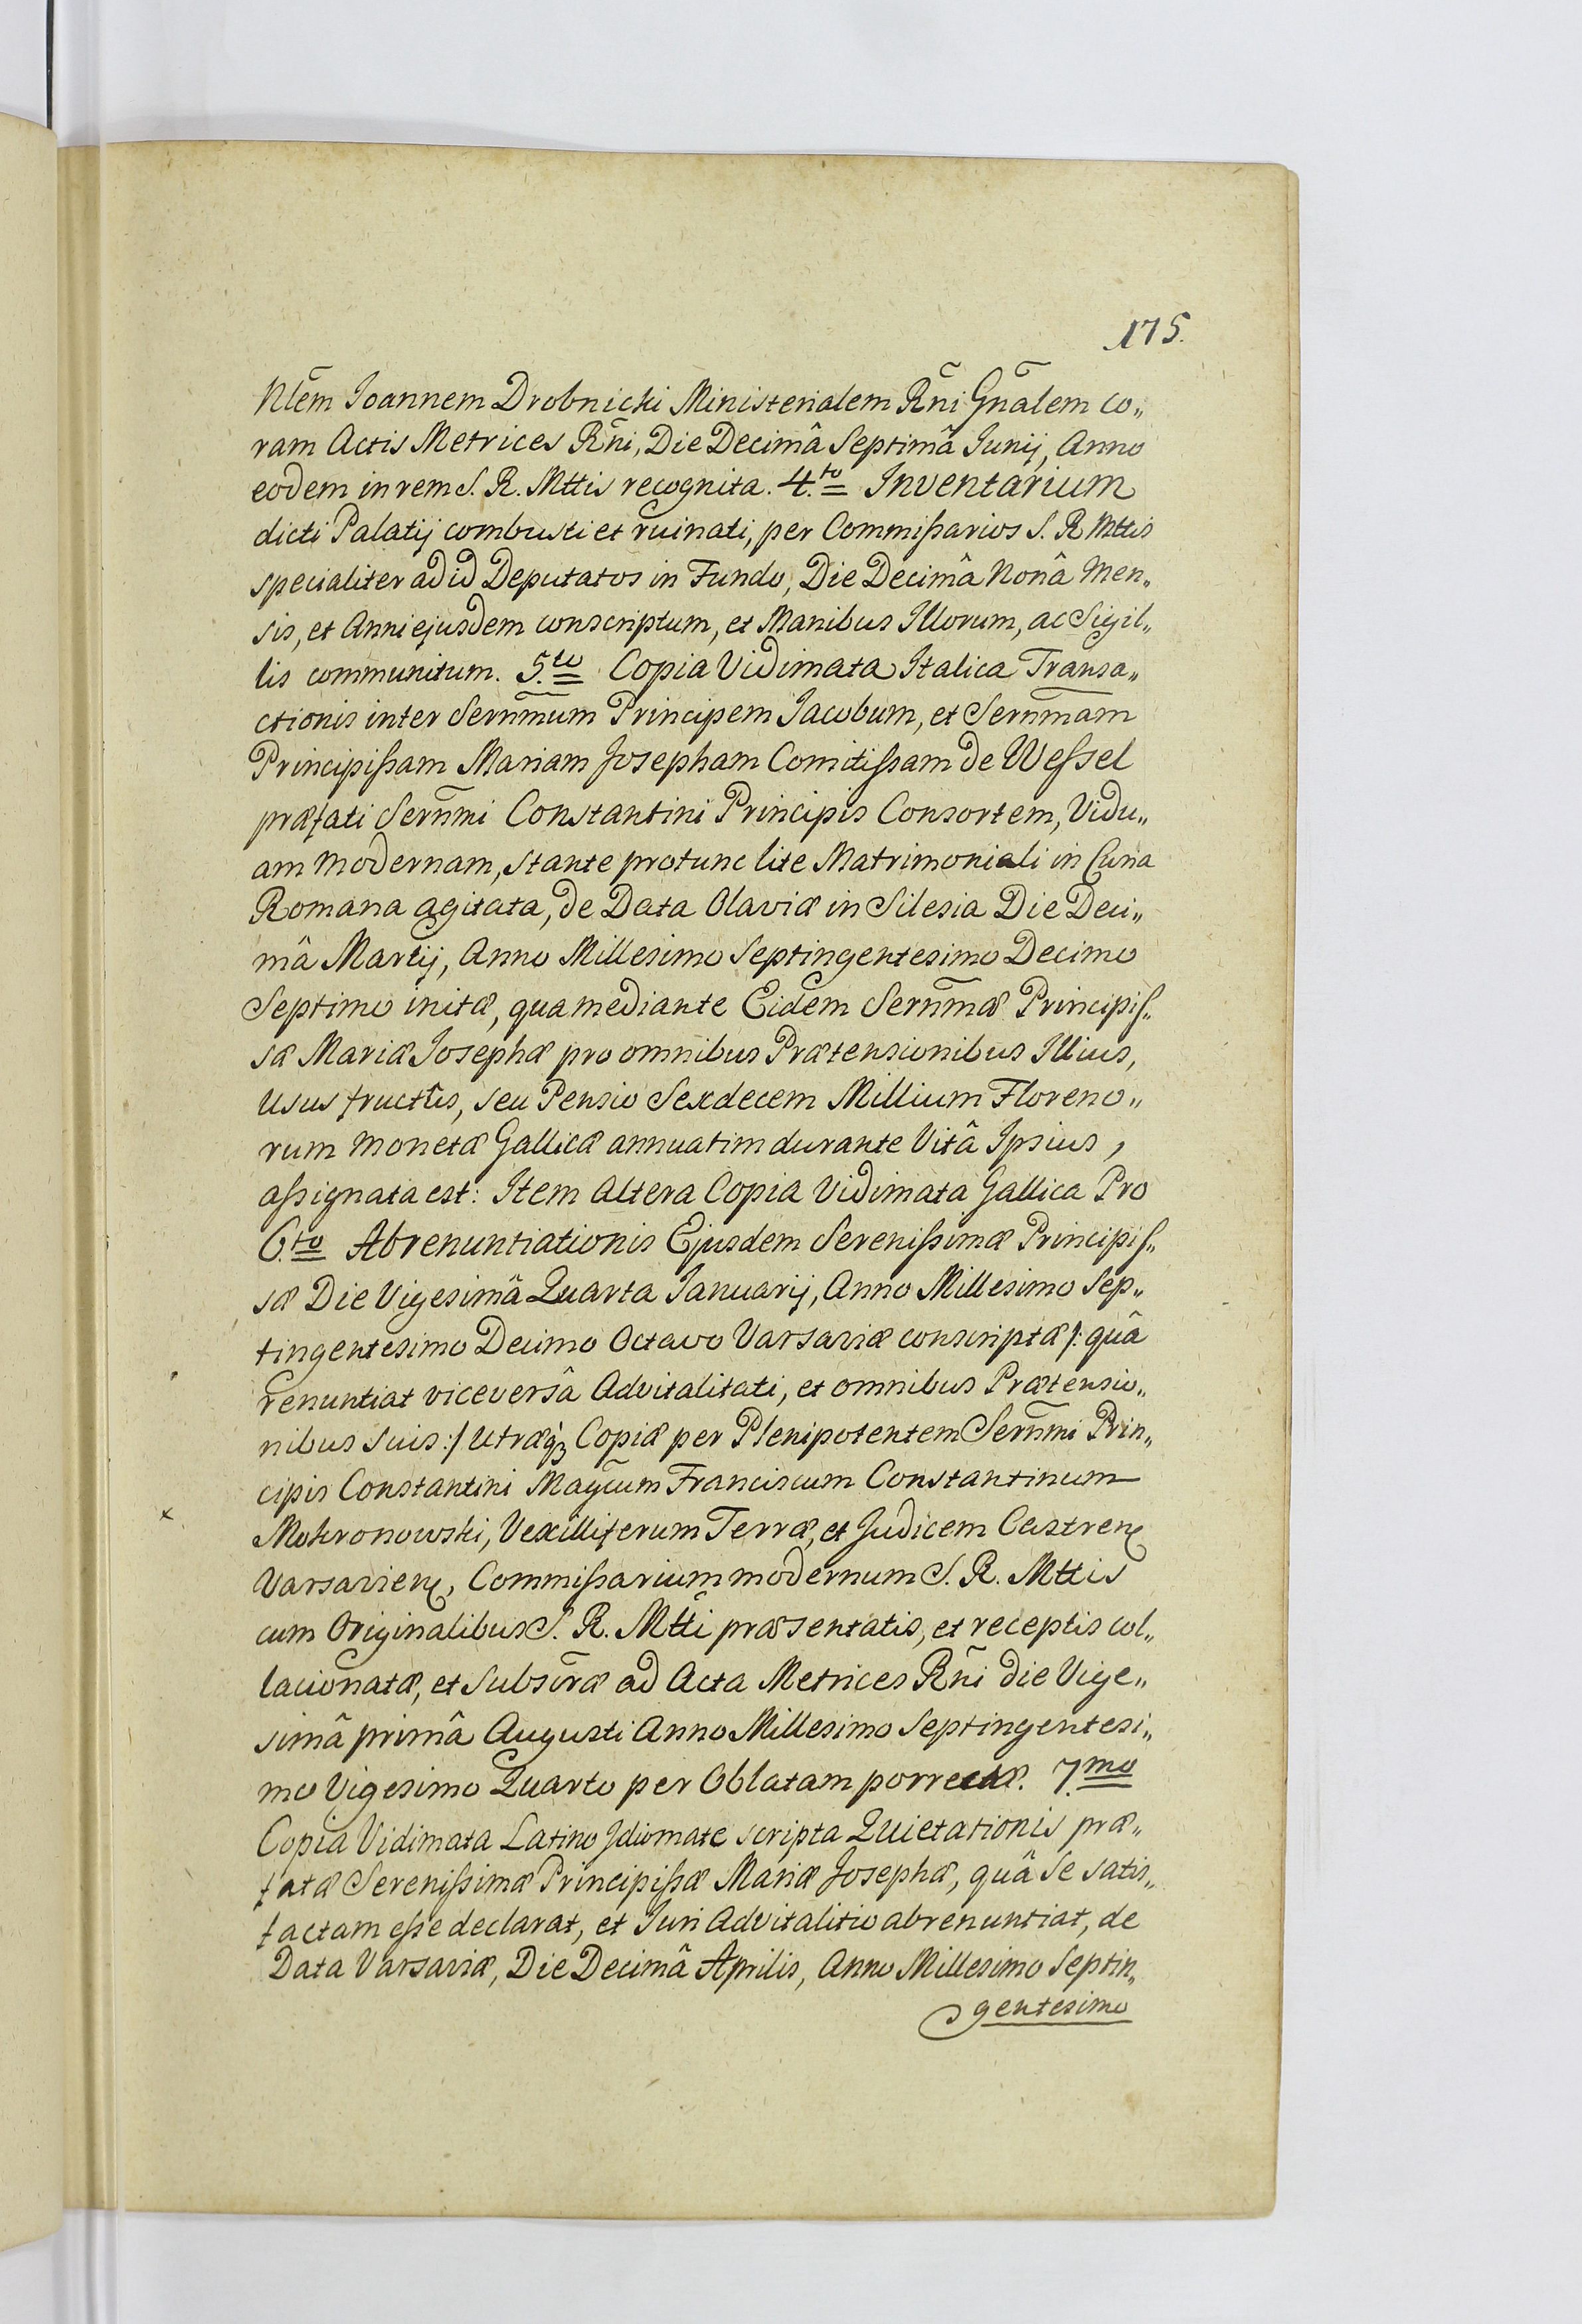 175.
Nlem̄ Ioannem Drobnicki Ministerialem Rn̄i Gnālem co„
ram Actis Metrices Rn̄i, Die Decimâ Septimâ Iunij, Anno
eodem in rem S. R. Mttis recognita. 4.to Inventarium
dicti Palatij combusti et ruinati, per Commißarios S. R Mttis
specialiter ad id Deputatos in Fundo, Die Decimâ Nonâ Men„
sis, et Anni ejusdem conscriptum, et Manibus Illorum, ac Sigil„
lis communitum. 5.to Copia Vidimata Italica Transa„
ctionis inter Sernm̄um Principem Jacobum, et Sernm̄am
Principißam Mariam Josepham Comitißam de Weßel
præfati Sernm̄i Constantini Principis Consortem, Vidu„
am modernam, stante protunc lite Matrimoniali in Curia
Romana agitata, de Data Olaviæ in Silesia Die Deci„
mâ Martij, Anno Millesimo Septingentesimo Decimo
Septimo initæ, qua mediante Eidem Sernm̄æ Principis„
sæ Mariæ Josephæ pro omnibus Prætensionibus Illius,
Usus fructûs, seu Pensio Sexdecem Millium Floreno„
rum Monetæ Gallicæ annuatim durante Vitâ Ipsius,
aßignata est: Item Altera Copia Vidimata Gallica Pro
6.to Abrenuntiationis Ejusdem Sereníßimæ Principis„
sæ Die Vigesimâ Quarta Ianuarij, Anno Millesimo Sep„
tingentesimo Decimo Octavo Varsaviæ conscriptæ /: quâ
renuntiat viceversâ Advitalitati, et omnibus Prætensio„
nibus suis :/ Utræq3 Copiæ per Plenipotentem Sernm̄i Prin„
cipis Constantini Magc̄um Franciscum Constantinum
Mokronowski, Vexilliferum Terræ, et Judicem Castren̨
Varsavien̨, Commißarium modernum S. R. Mttis
cum Originalibus S. R. Mtti præsentatis, et receptis col„
lacionatæ, et Subscr̄æ ad Acta Metrices Rn̄i die Vige„
simâ primâ Augusti Anno Millesimo Septingentesi„
mo Vigesimo Quarto per Oblatam porrectæ. 7.mo
Copia Vidimata Latino Idiomate scripta Quietationis præ„
fatæ Serenißimæ Principißæ Mariæ Josephæ, quâ se satis„
factam eße declarat, et Iuri Advitalitio abrenuntiat, de
Data Varsaviæ, Die Decimâ Aprilis, Anno Millesimo Septin„
gentesimo